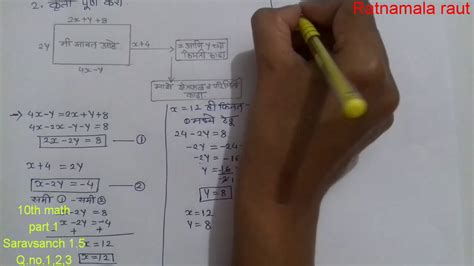 Ratnamala raut
2. कृती पूर्ण करा
2x+y+8
2y
मी आयत आहे
x+4
4x-y
x आणि y च्या
किमती काढा
माझे क्षेत्रफळ व परिमिती
काढा.
→ 4x-y=2x+y+8
4x-2x-y-y=8
2x-2y=8 — ①
x+4 = 2y
x-2y=-4 — ②
समी ① - समी ②
2x-2y=8
x-2y=-4
- + +
x=12
x=12
x=12 ही किंमत
① मध्ये ठेवू
24-2y=8
-2y=-24
-2y=-16
y=8
x=12
y=8
10th math
part 1
Saravsanch 1.5
Q.no.1,2,3